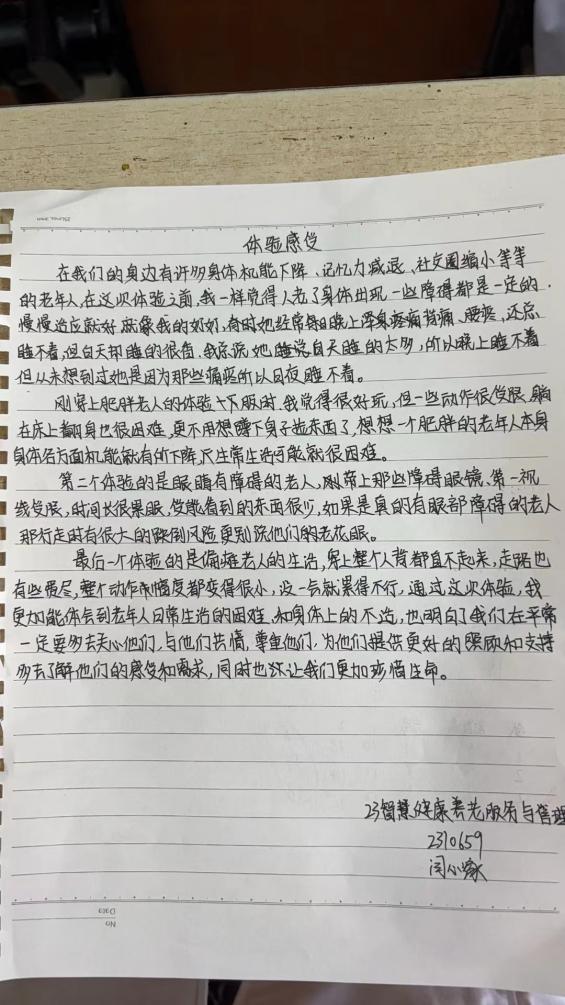 体验感受
在我们的身边有许多身体机能下降、记忆力减退、社交圈缩小等等
的老年人,在这次体验之前,我一样觉得人老了身体出现一些障碍都是一定的.
慢慢适应就好.就像我的奶奶,有时她经常和晚上浑身疼痛背痛、腰疼,还总
睡不着,但白天却睡的很香.我总说她睡觉白天睡的太多,所以晚上睡不着
但从未想到过她是因为那些痛疼所以日夜睡不着。
刚穿上肥胖老人的体验服时,我觉得很好玩,但一些动作很受限,躺
在床上翻身也很困难,更不用想蹲下身子捡东西了,想想一个肥胖的老年人本身
身体各方面机能就有所下降,尺生常生活可能就很困难。
第二个体验的是眼睛有障碍的老人,刚带上那些障碍眼镜、第一视
线受限,时间长很累眼,受能看到的东西很少,如果是真的有眼部障碍的老人
那行走时有很大的跌倒风险更别说他们的老花眼。
最后一个体验的是偏瘫老人的生活,穿上整个人背都直不起来,走路也
有些费尽,整个动作幅度都变得很小,没一会就累得不行,通过这次体验,我
更加能体会到老年人日常生活的困难.和身体上的不适,也明白了我们在平常
一定要多去关心他们,与他们共情,尊重他们,为他们提供更好的照顾和支持
多去了解他们的感受和需求,同时也让我们更加珍惜生命。
23智慧健康养老服务与管理
2310659
闫小
No
Date